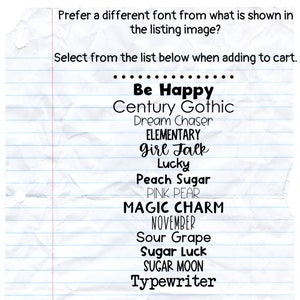 Prefer a different font from what is shown in
the listing image?
Select from the list below when adding to cart.
Be Happy
Century Gothic
Dream Chaser
ELEMENTARY
Girl Talk
Lucky
Peach Sugar
PINK PEAR
MAGIC CHARM
NOVEMBER
Sour Grape
Sugar Luck
SUGAR MOON
Typewriter